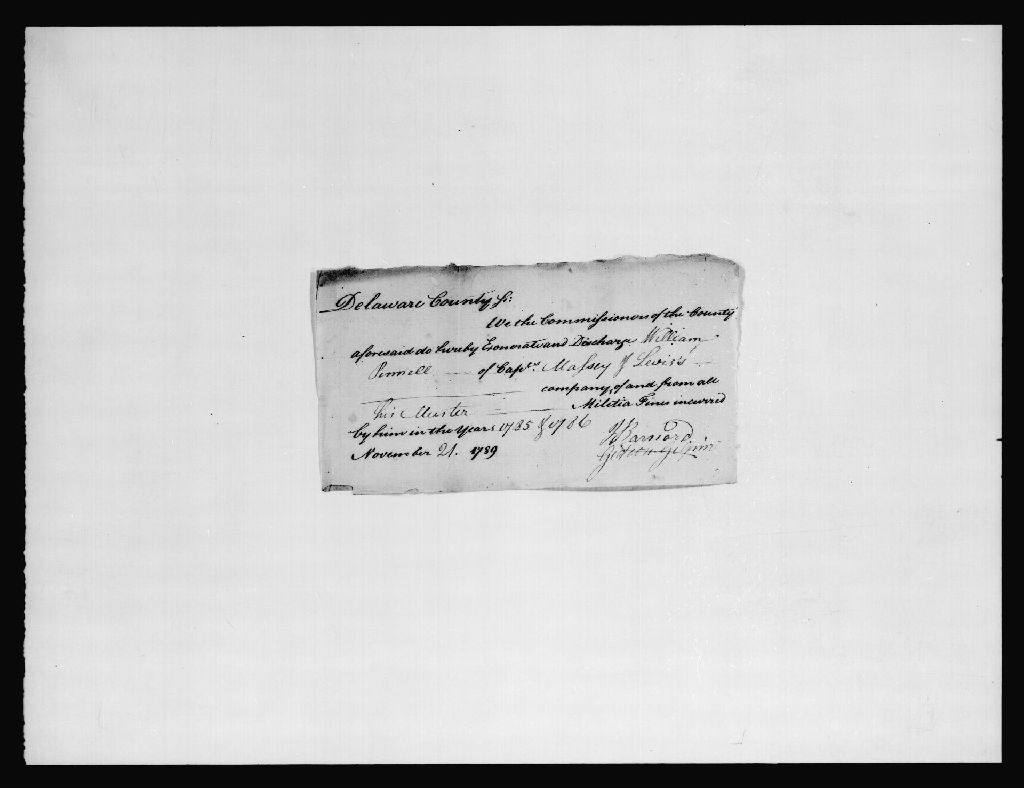 Delaware County ss:
We the Commissioners of the County
aforesaid do hereby Exonerate and Discharge William
Pennell of Capts. Massey & Lewis's
company, of and from all
his Muster Militia Fines incurred
by him in the Years 1785 & 1786
November 21. 1789
J Barnard
Gideon Gilpin